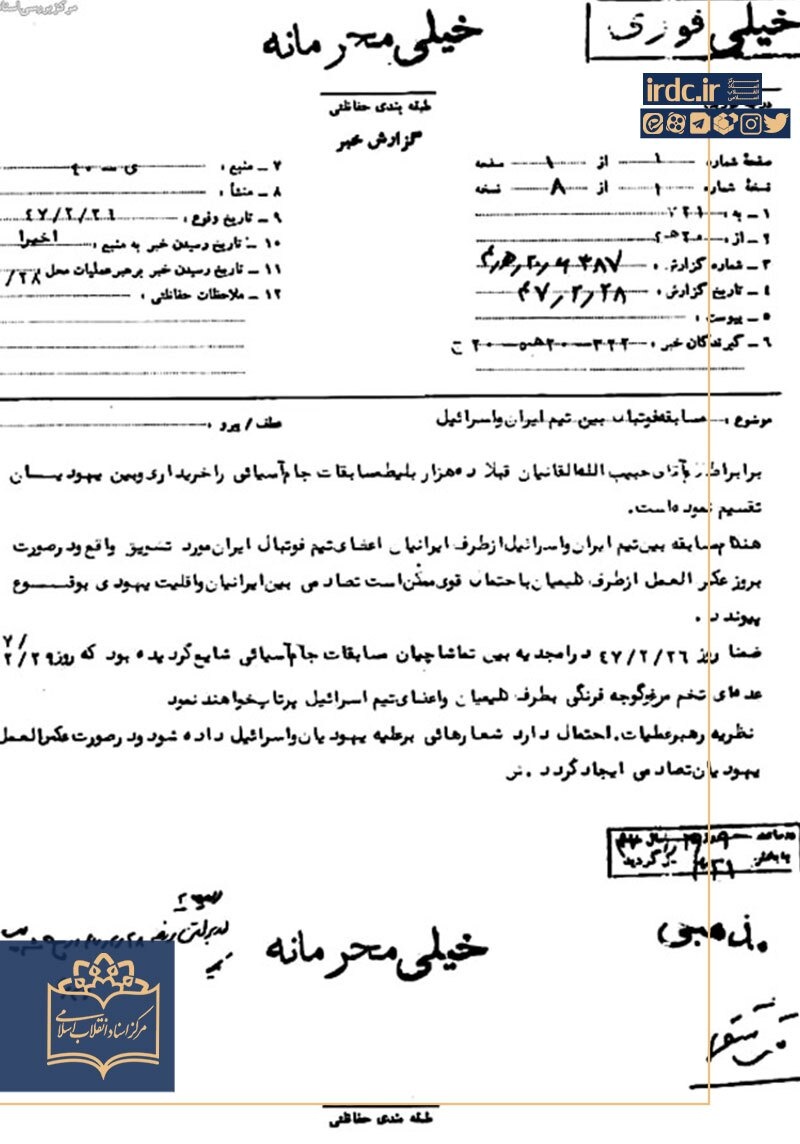 مرکز بررسی اسناد
خیلی فوری
خیلی محرمانه
irdc.ir
مرکز اسناد انقلاب اسلامی
طبقه بندی حفاظتی
گزارش خبر
صفحهٔ شماره ۱ از ۱ صفحه
نسخهٔ شماره ۱ از ۸ نسخه
۱ ـ به :
۲ ـ از : ۲۰ ه‍ ۲
۳ ـ شماره گزارش :
۴ ـ تاریخ گزارش : ۴۷/۲/۲۸
۵ ـ پیوست :
۶ ـ گیرندگان خبر : ۳۲۲ ـ ۲۰ ه‍ ۵ ـ ۲۰ ج
۷ ـ منبع :
۸ ـ منشأ :
۹ ـ تاریخ وقوع : ۴۷/۲/۲۶
۱۰ ـ تاریخ رسیدن خبر به منبع : اخیرا
۱۱ ـ تاریخ رسیدن خبر برهبر عملیات محل : /۲۸
۱۲ ـ ملاحظات حفاظتی :
موضوع : مسابقه فوتبال بین تیم ایران و اسرائیل
عطف / پیرو :
برابر اطلاع آقای حبیب الله القانیان قبلا ده هزار بلیط مسابقات جام آسیائی را خریداری و بین یهودیـــان
تقسیم نموده است.
هنگام مسابقه بین تیم ایران و اسرائیل از طرف ایرانیان اعضای تیم فوتبال ایران مورد تشویق واقع و در صورت
بروز عکس العمل از طرف کلیمیان باحتمال قوی ممکن است تصادمی بین ایرانیان و اقلیت یهودی بوقــــوع
پیوندد .
ضمنا روز ۴۷/۲/۲۶ در امجدیه بین تماشاچیان مسابقات جام آسیائی شایع گردیده بود که روز ۲/۲۹/
عده ای تخم مرغ و گوجه فرنگی بطرف کلیمیان و اعضای تیم اسرائیل پرتاب خواهند نمود
نظریه رهبر عملیات. احتمال دارد شعارهائی برعلیه یهودیان و اسرائیل داده شود و در صورت عکس العمل
یهودیان تصادمی ایجاد گردد .
خیلی محرمانه
مرکز اسناد انقلاب اسلامی
طبقه بندی حفاظتی